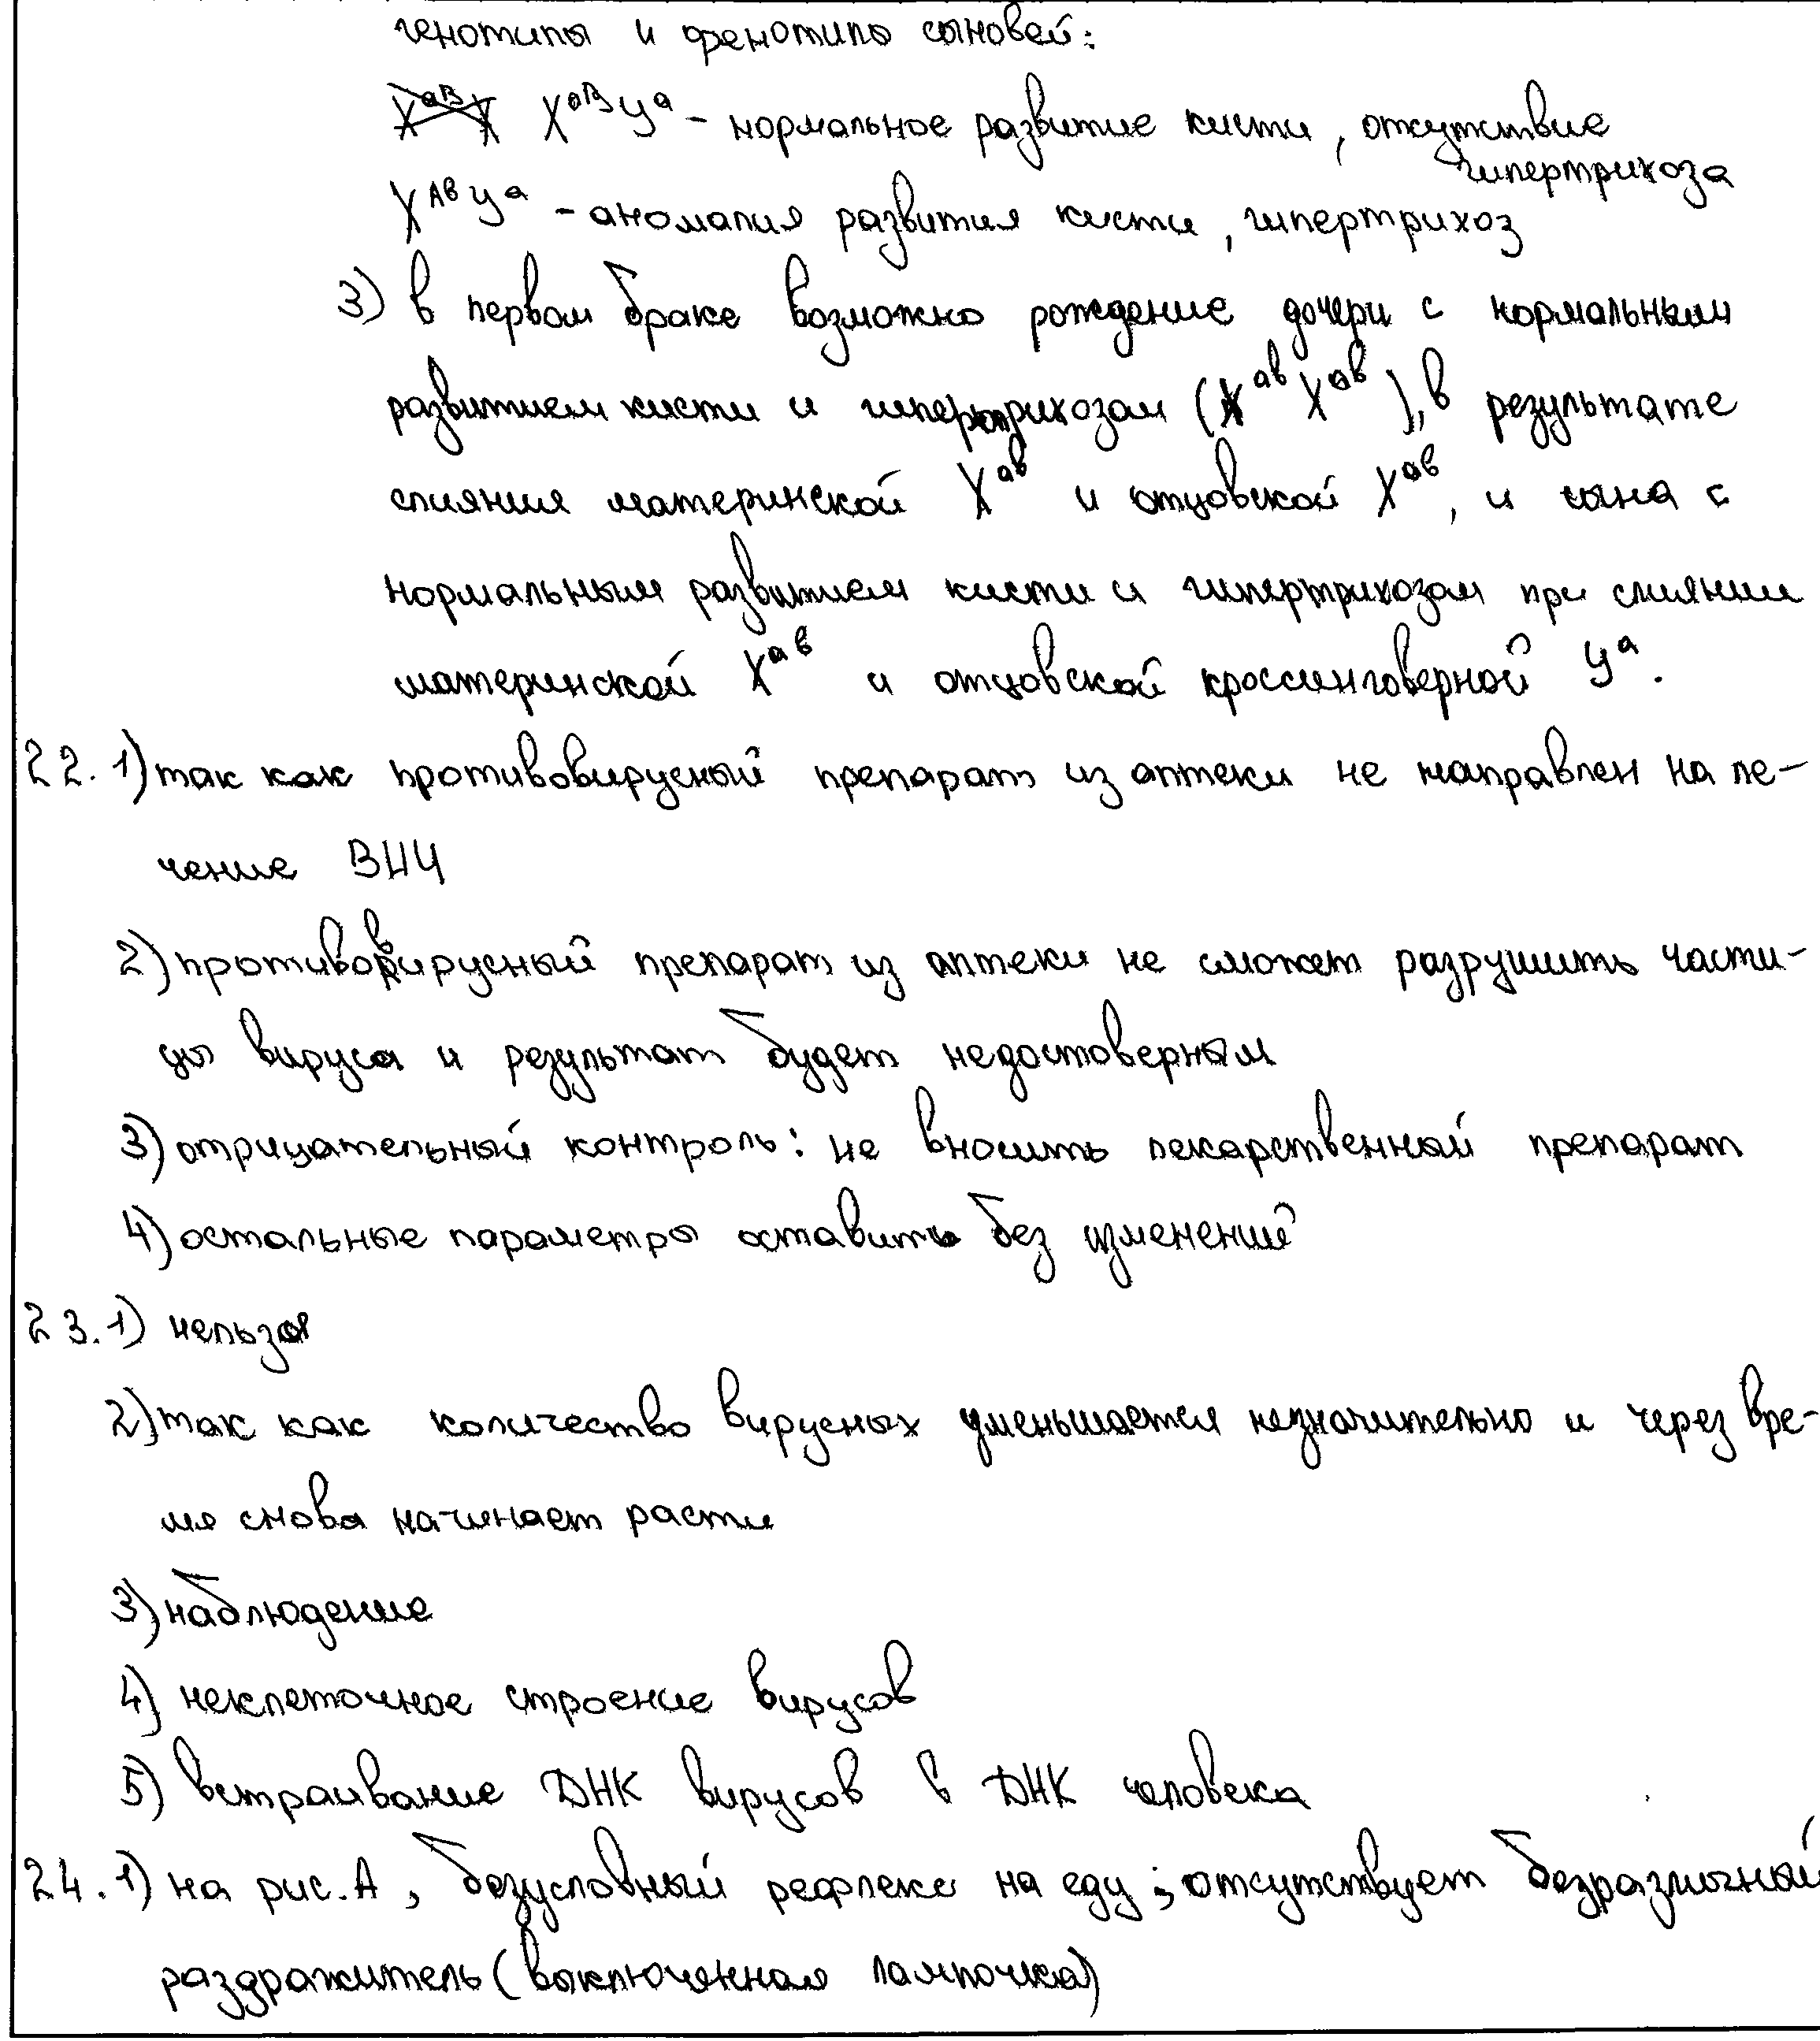 генотипы и фенотипы сыновей:
X^aB Y^a - нормальное развитие кисти, отсутствие
гипертрихоза
X^Ab Y^a - аномалия развития кисти, гипертрихоз
3) в первом браке возможно рождение дочери с нормальным
развитием кисти и гипертрихозом (X^ab X^ab), в результате
слияния материнской X^ab и отцовской X^ab, и сына с
нормальным развитием кисти и гипертрихозом при слиянии
материнской X^ab и отцовской кроссинговерной Y^a.
22. 1) так как противовирусный препарат из аптеки не направлен на ле-
чение ВИЧ
2) противовирусный препарат из аптеки не сможет разрушить части-
цы вируса и результат будет недостоверным
3) отрицательный контроль: не вносить лекарственный препарат
4) остальные параметры оставить без изменений
23. 1) нельзя
2) так как количество вирусных уменьшается незначительно и через вре-
мя снова начинает расти
3) наблюдение
4) неклеточное строение вирусов
5) встраивание ДНК вирусов в ДНК человека
24. 1) на рис. А, безусловный рефлекс на еду; отсутствует безразличный
раздражитель (выключенная лампочка)